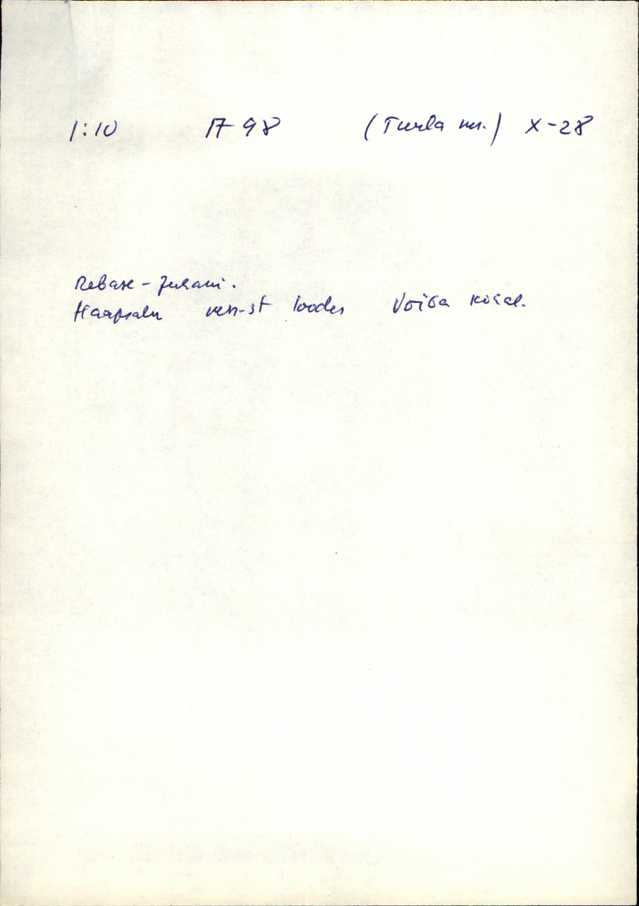 1:10 A 98 (Turla nr.) X-28
Rebase-Juhani.
Haapsalu mnt-st loodes Võiba kõial.